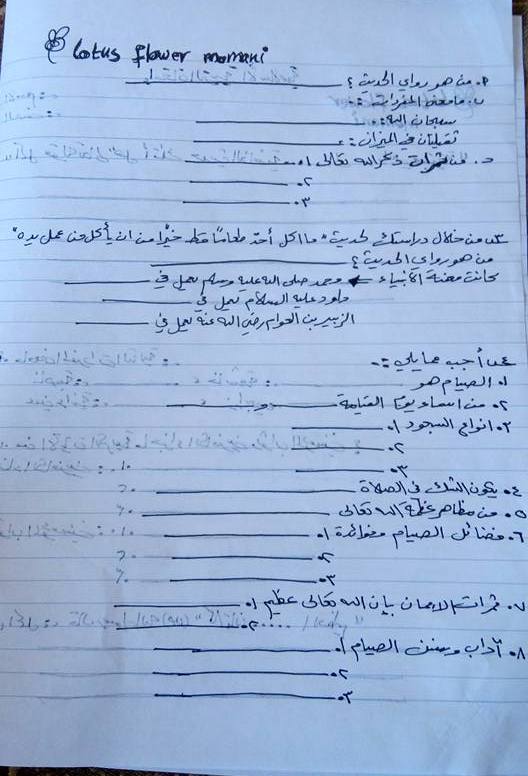 lotus flower momani
٢. من هو رواي الحديث ؟
ب. مامعنى المفردات :-
سبحان الله :
ثقيلتان في الميزان :
د. من ثمرات ذكر الله تعالى ١.
٢.
٣.
س٣ من خلال دراستك لحديث " ما اكل أحد طعاماً قط خيراً من ان يأكل من عمل يده "
من هو رواي الحديث ؟
كانت مهنة الأنبياء محمد صلى الله عليه وسلم يعمل في
داود عليه السلام يعمل في
الزبير بن العوام رضي الله عنه يعمل في
س٤ أجب عما يلي :-
١. الصيام هو
٢. من اسماء يوم القيامة و
٣. انواع السجود ١.
٢.
٣.
٤. يكون الشك في الصلاة
٥. من مظاهر عظمة الله تعالى
٦. فضائل الصيام وفوائده ١.
٢.
٣.
٧. ثمرات الايمان بان الله تعالى عظيم ١.
٢.
٨. آداب وسنن الصيام ١.
٢.
٣.